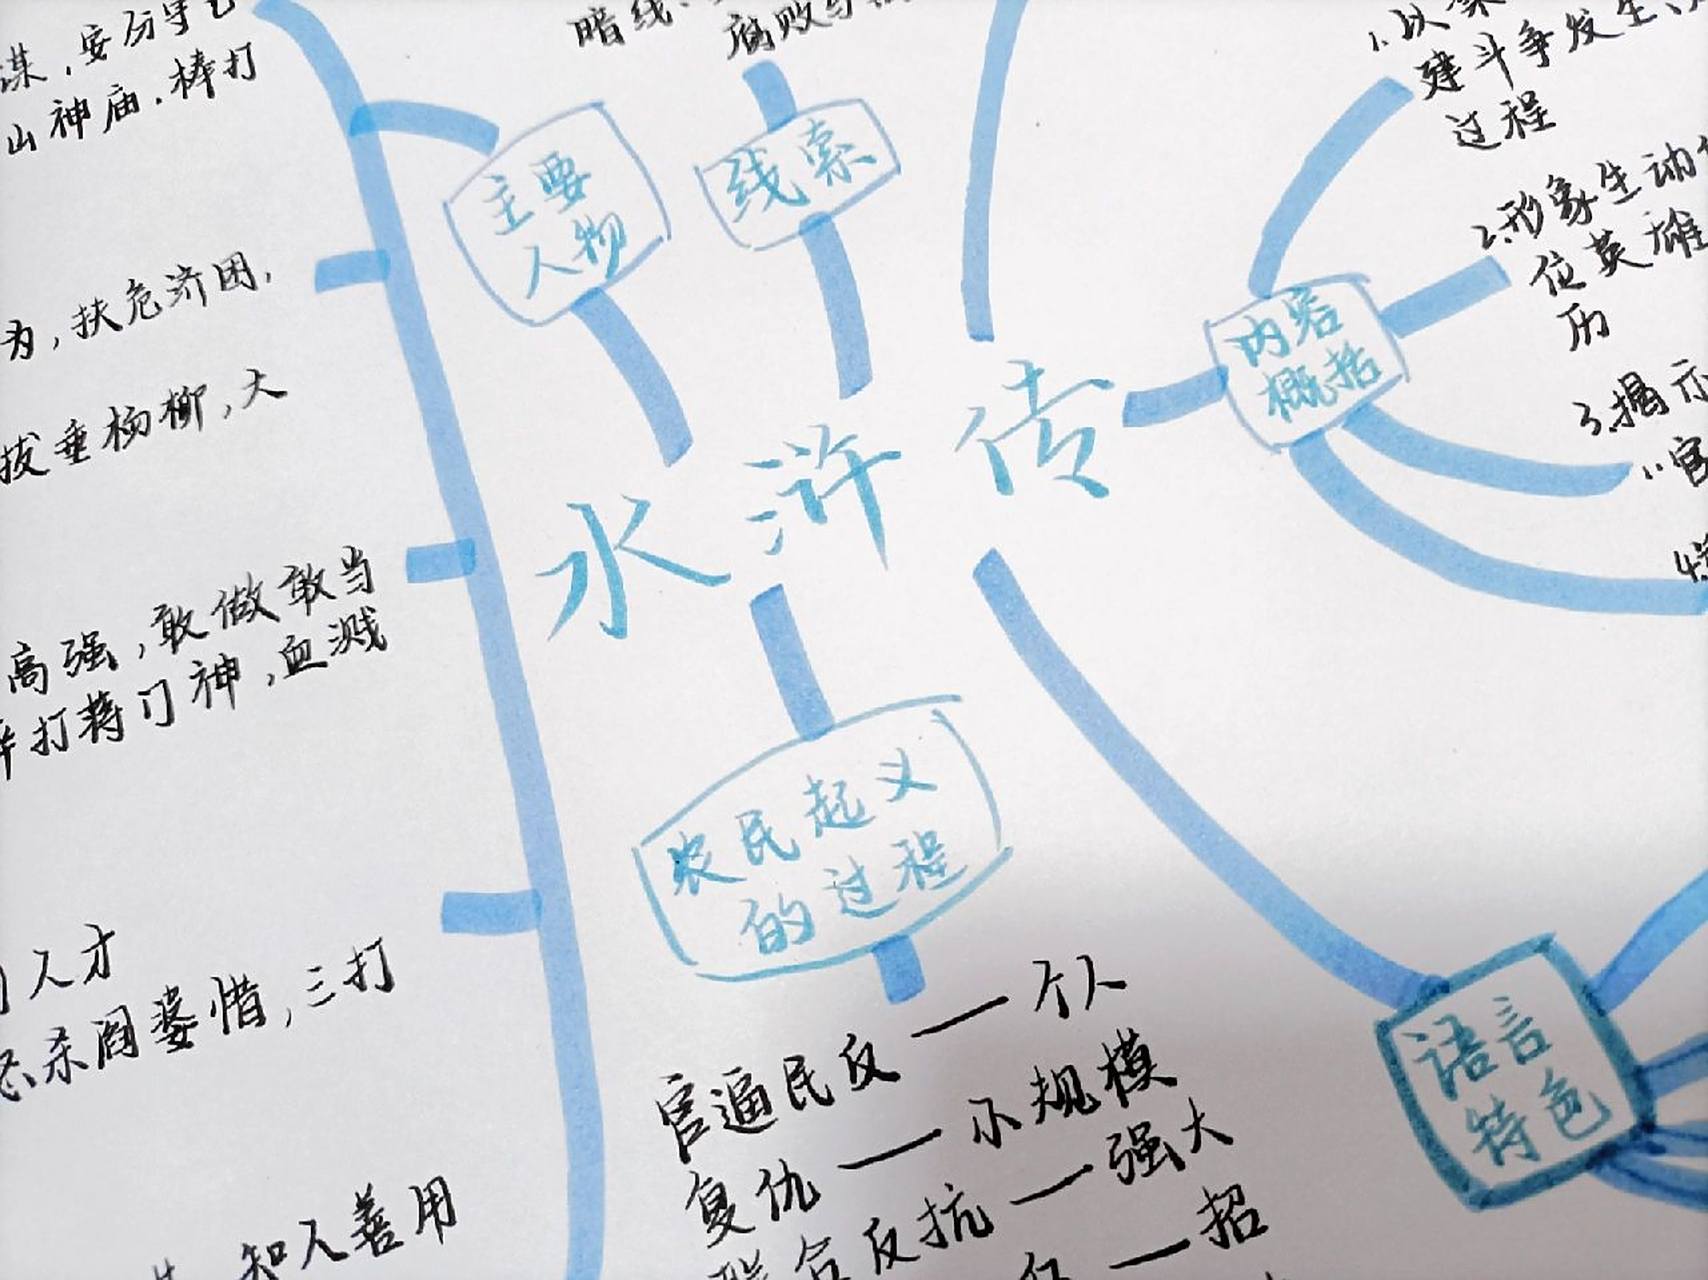 水浒传
主要
人物
谋，安份守己
山神庙，棒打
为，扶危济困，
拔垂杨柳，大
高强，敢做敢当
打蒋门神，血溅
人才
杀阎婆惜，三打
知人善用
线索
暗线
腐败与
内容
概括
1.以宋
建斗争发生、
过程
2.形象生动
位英雄
历
3.揭示
"官
4.
农民起义
的过程
官逼民反 — 个人
复仇 — 小规模
联合反抗 — 强大
— 招
语言
特色